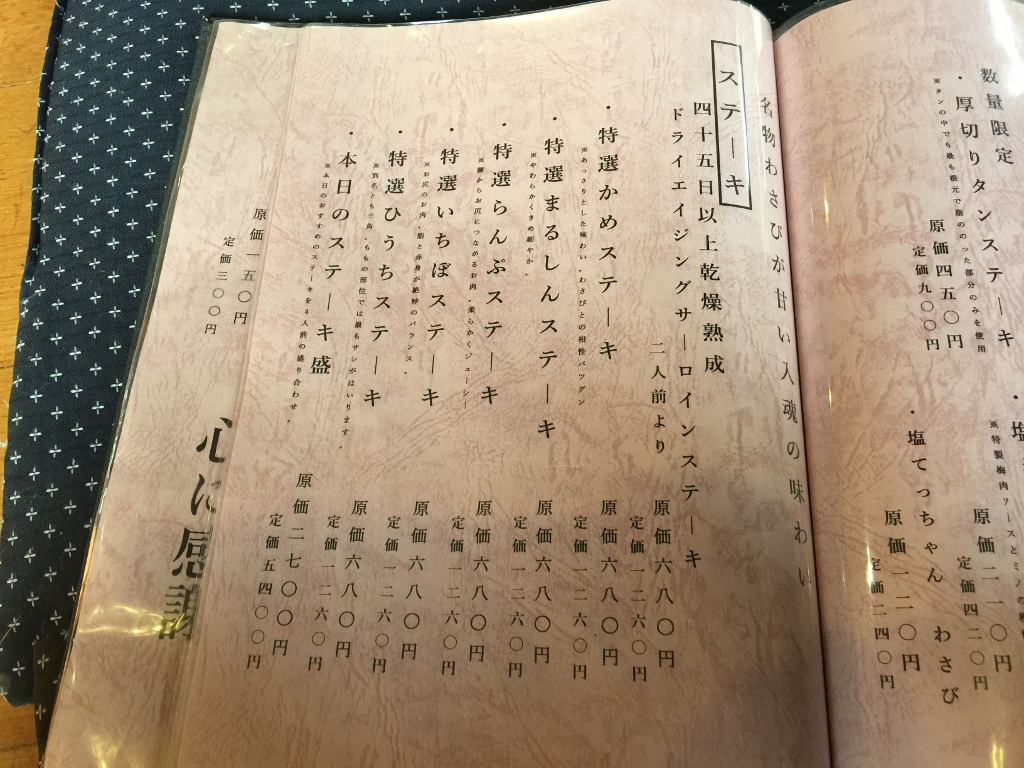 数量限定
・厚切りタンステーキ
※タンの中でも最も根元で脂ののった部分のみを使用
原価四五〇円
定価九〇〇円
※特製梅肉ソースとミノの
原価二一〇円
定価四二〇円
・塩てっちゃん わさび
原価一二〇円
定価二四〇円
名物わさびが甘い入魂の味わい
ステーキ
四十五日以上乾燥熟成
ドライエイジングサーロインステーキ
二人前より
原価六八〇円
定価一二六〇円
・特選かめステーキ
※あっさりとした味わい。わさびとの相性バツグン
原価六八〇円
定価一二六〇円
・特選まるしんステーキ
※やわらかくきめ細やか。
原価六八〇円
定価一二六〇円
・特選らんぷステーキ
※腰からお尻につながるお肉。柔らかくジューシー
原価六八〇円
定価一二六〇円
・特選いちぼステーキ
※お尻のお肉。脂と赤身が絶妙のバランス。
原価六八〇円
定価一二六〇円
・特選ひうちステーキ
※別名とも三角。ももの部位では最もサシがはいります。
原価六八〇円
定価一二六〇円
・本日のステーキ盛
※本日のおすすめのステーキを4人前の盛り合わせ。
原価二七〇〇円
定価五四〇〇円
原価一五〇円
定価三〇〇円
心に感謝